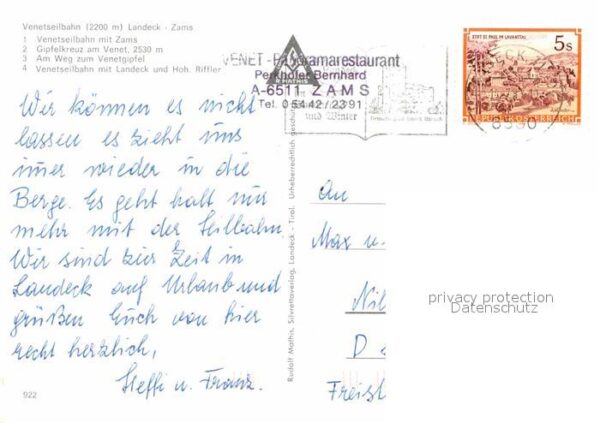 Venetseilbahn (2200 m) Landeck - Zams
1 Venetseilbahn mit Zams
2 Gipfelkreuz am Venet, 2530 m
3 Am Weg zum Venetgipfel
4 Venetseilbahn mit Landeck und Hoh. Riffler
VENET - Panoramarestaurant
Perkhofer Bernhard
A-6511 ZAMS
Tel. 05442/2391
und Winter
STIFT ST. PAUL IM LAVANTTAL
5 S
REPUBLIK ÖSTERREICH
6500
Wir können es nicht
lassen es zieht uns
imer wieder in die
Berge. Es geht halt nur
mehr mit der Seilbahn
Wir sind zur Zeit in
Landeck auf Urlaub und
grüßen Euch von hier
recht herzlich,
Steffi u. Franz.
922
Rudolf Mathis, Silvrettaverlag, Landeck - Tirol. Urheberrechtlich geschützt
An
Max u.
Nil
D
Freist
privacy protection
Datenschutz